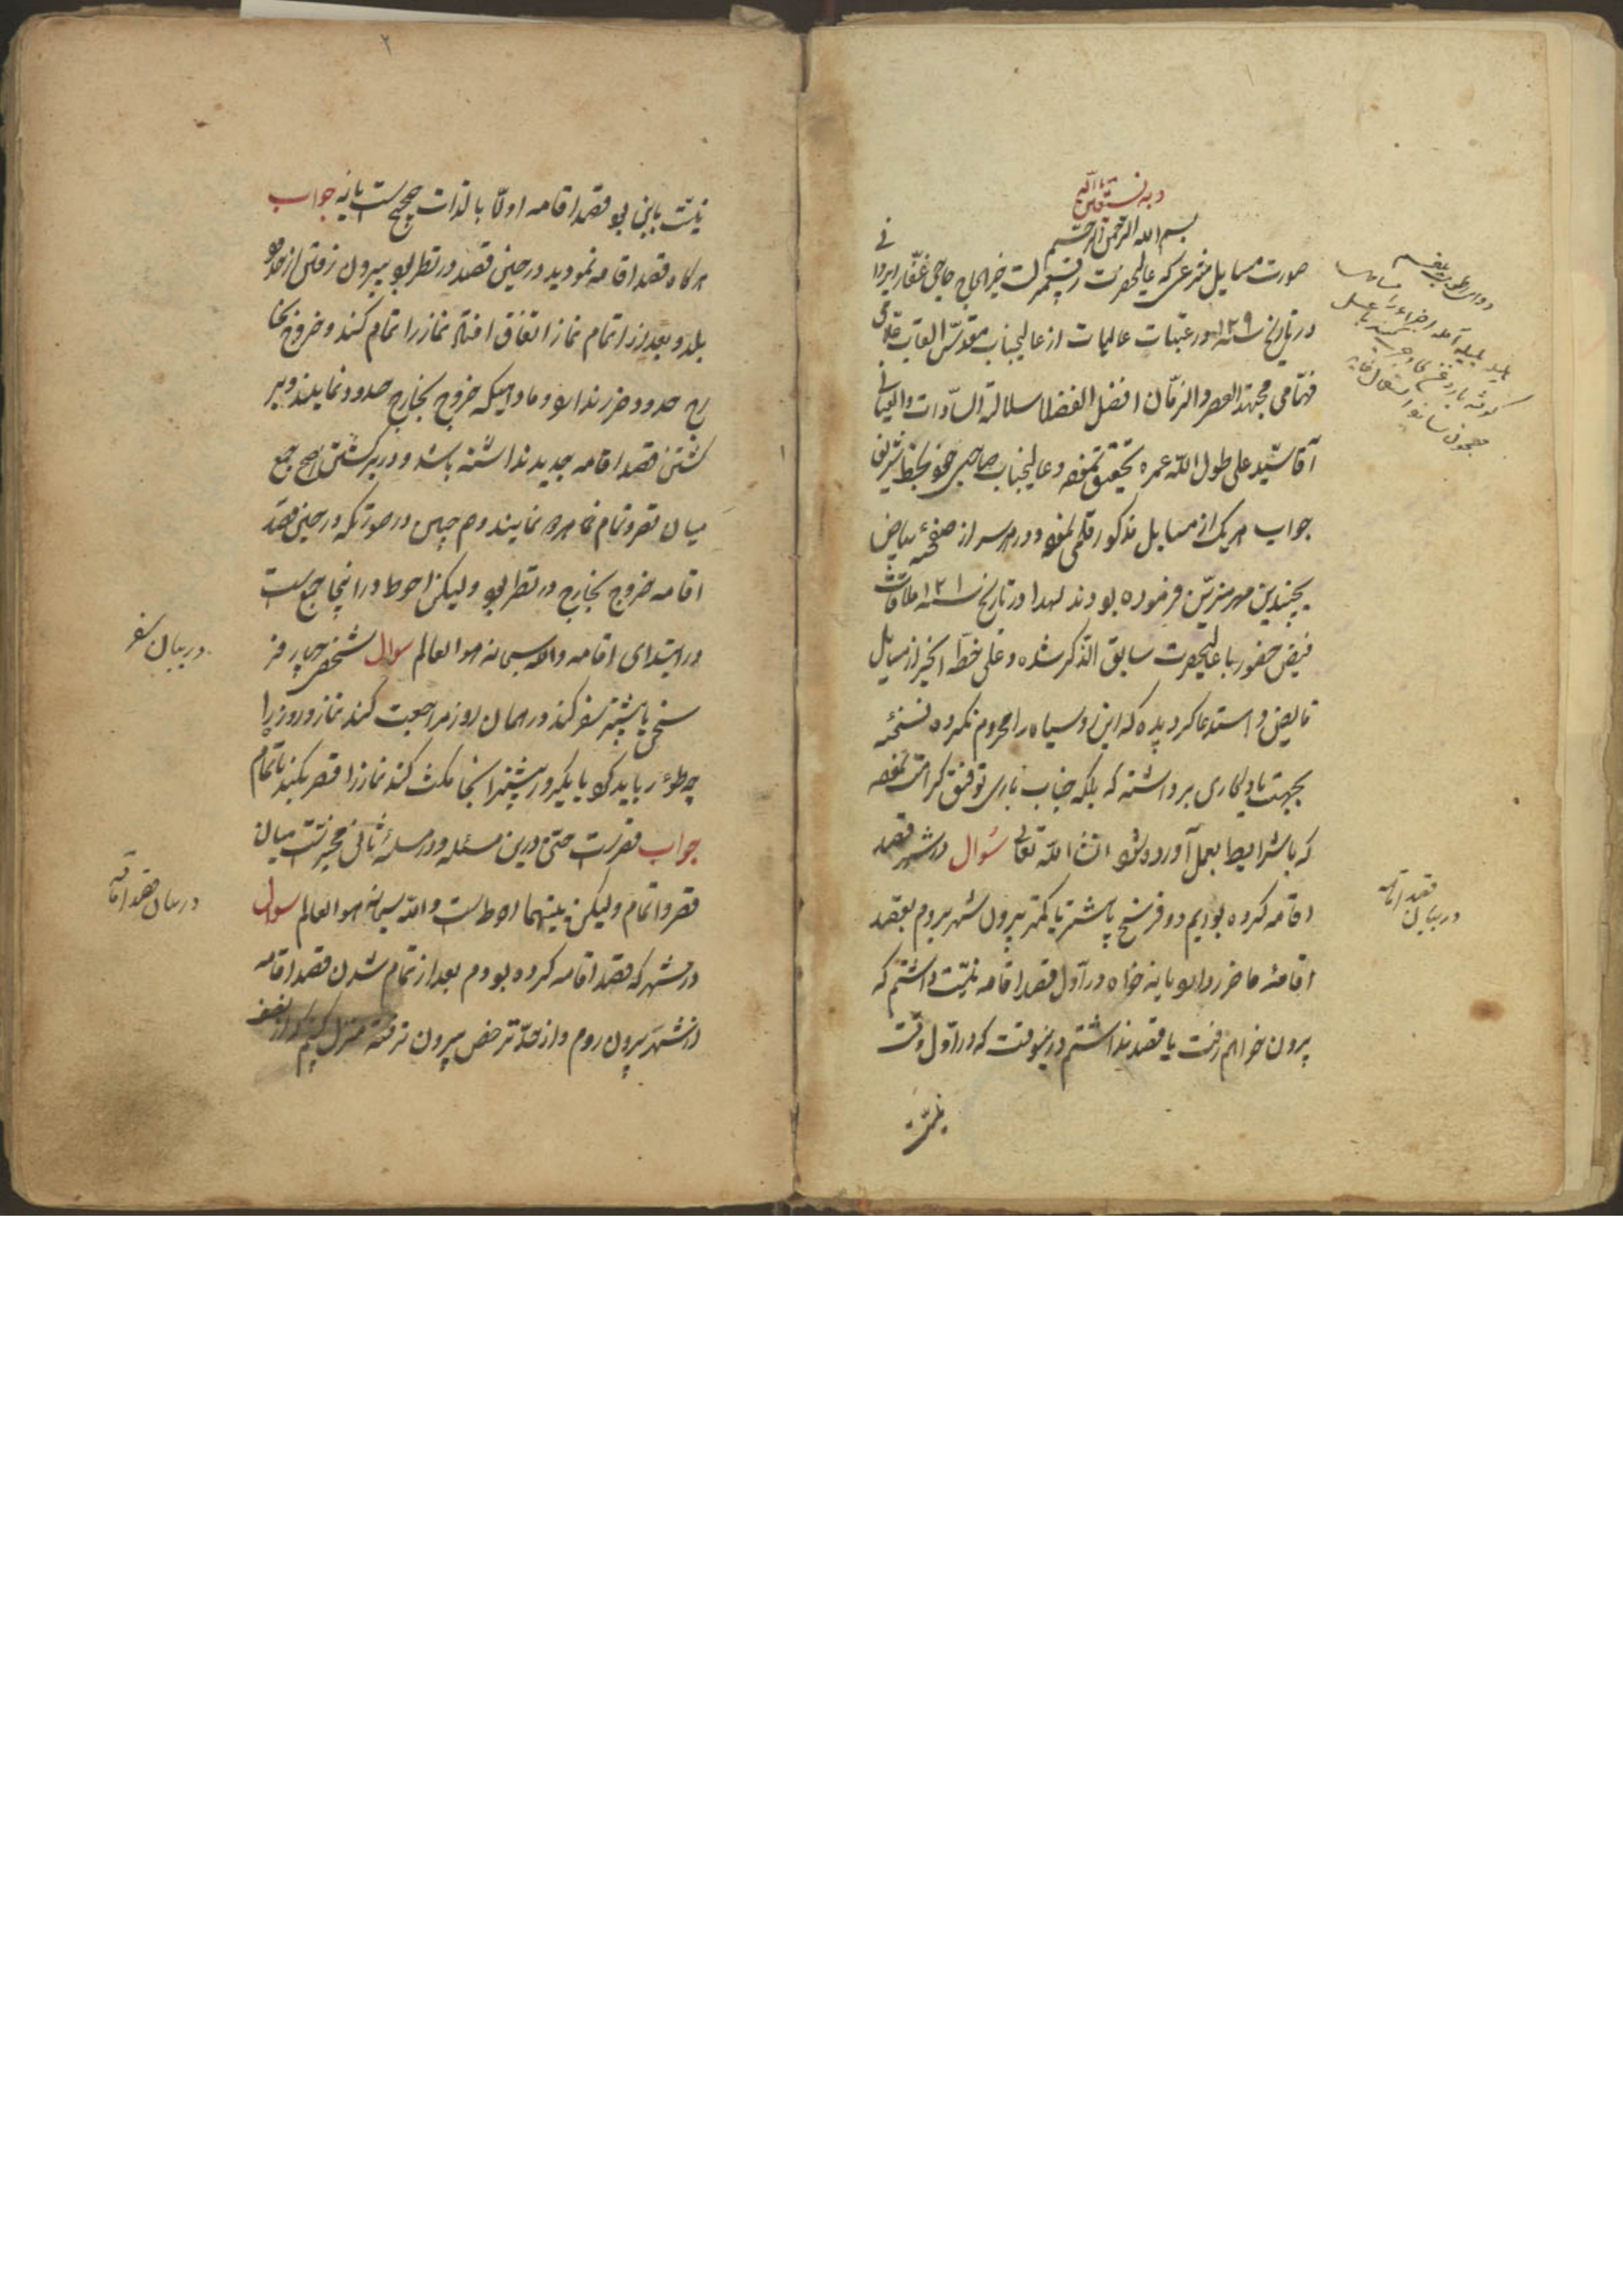 و به نستعین
بسم الله الرحمن الرحیم
صورت مسایل شرعی که عالیحضرت خیر الحاج حاجی غفار
در تاریخ سنه ۱۲۰۹ در عتبات عالیات از عالیجناب مقدس القاب علامی
فهامی مجتهد العصر و الزمان افضل الفضلا سلالة السادات
آقا سید علی طول الله عمره تحقیق نموده و عالیجناب بخط شریف
جواب هر یک از مسایل مذکور قلمی نموده و در هر سر از صفحه بیاض
بچندین مهر مزین فرموده بودند لهذا در تاریخ سنه ۱۲۱ ملاقات
فیض حضور با عالیحضرت سابق الذکر شده و علی خطه اکثر از مسایل
فایض و استدعا کردیده که این رو سیاه را محروم نکرده نسخه
بجهت یادکاری برداشته که بلکه جناب باری توفیق کرامت نموده
که باشرایط بعمل آورده شود انشاء الله تعالی سؤال در شهر قصد
اقامه کرده بودیم دو فرسخ یا بیشتر یا کمتر بیرون شهر برویم بقصد
اقامهٔ ما ضرر دارد یا نه خواه در اول قصد اقامه نیت داشتم که
بیرون خواهم رفت یا قصد نداشتم در نیوقت که در اول وقت
نیت
دوای بلغم
هلیله بلیله آمله اجزاء را
معجون
در بیان قصد اقامه
۲
نیت باین بود قصد اقامه اولا بالذات صحیحست یا نه جواب
هر کاه قصد اقامه نمودید در حین قصد در نظر بود بیرون رفتن از حدود
بلد و بعد از اتمام نماز اتفاق افتاد نماز را تمام کند و خروج بخا
رج حدود ضرر ندارد و مادامیکه خروج بخارج حدود نمایند و بر
کشتن قصد اقامه جدید نداشته باشد و در برکشتن اصح جمع
میان قصر و تمام نمایند و هم چنین در صورتیکه در حین قصد
اقامه خروج بخارج در نظر بود و لیکن احوط در اینجا جمعست
در ابتدای اقامه والله سبحانه هو العالم سوال شخصی چهار فر
سخی یا بیشتر سفر کند در همان روز مراجعت کند نماز و روزه را
چه طور باید کرد یا یکروز بیشتر اینجا مکث کند نماز را قصر بکند یا تمام
جواب قصر است حتی درین مسئله و در مسئلهٔ ثانی مخیر است میان
قصر و اتمام و لیکن بینهما احوط است والله سبحانه هو العالم سوال
در شهر که قصد اقامه کرده بودم بعد از تمام شدن قصد اقامه
از شهر بیرون روم و از حد ترخص بیرون نرفته منزل کنم
در بیان سفر
در بیان قصد اقامه